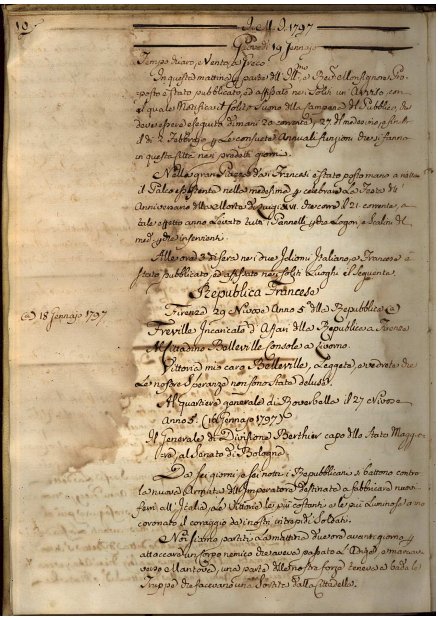 10
1797
Giovedì 19 Gennajo
Tempo chiaro, e Vento, e fresco
In questa mattina p parte dell' Ill.mo, e Rev. Monsignore Pro-
posto è stato pubblicato, ed affisso nei soliti un Avviso, con
il quale Notifica il solito Suono della Campana del Pubblico, che
deve essere eseguito dimani 20 corrente, 27 del medesimo, e fino
il dì 2 Febbrajo, p le consuete Annuali funzioni che si fanno
in questa Città nei predetti giorni.
Nella gran Piazza da Francesi è stato posto mano a
il Palco esistente nella medesima p celebrare la Festa dell'
Anniversario della Morte di Luigi XVI. che corre il 21 corrente, a
tale effetto anno levato tutti i Pannelli, e Scalini del
med.mo
Alle ore 3 di sera nei due Idiomi Italiano, e Francese è
stato pubblicato, ed affisso nei soliti Luoghi il seguente
Republica Francese
(a) 18 Gennajo 1797.
Firenze 29 Nivose Anno 5. della Republica (a)
Treville Incaricato d'Affari della Republica a Firenze
Al Cittadino Belleville Console a Livorno.
Vittoria mio caro Belleville, Leggete, e vedrete che
le nostre Speranze non sono state deluse.
Al quartiere generale di Roverbella il 27 Nivose
Anno 5. (16 Gennajo 1797)
Il Generale di Divisione Berthier capo dello Stato Maggio-
re, al Senato di Bologna.
Da sei giorni, e sei notti i Republicani si battono contro
la nuova Armata dell' Imperatore destinata a fabbricare nuovi
ferri all' Italia, le Vittorie le più costanti, e le più luminose anno
coronato il coraggio dei nostri intrepidi Soldati.
Noi siamo partiti la mattina due ore avanti giorno p
attaccare un corpo nemico che aveva passato l'Adige, e marciava
verso Mantova, una parte della nostra forza teneva a bada le
Truppe che facevano una Sortita dalla Cittadella.